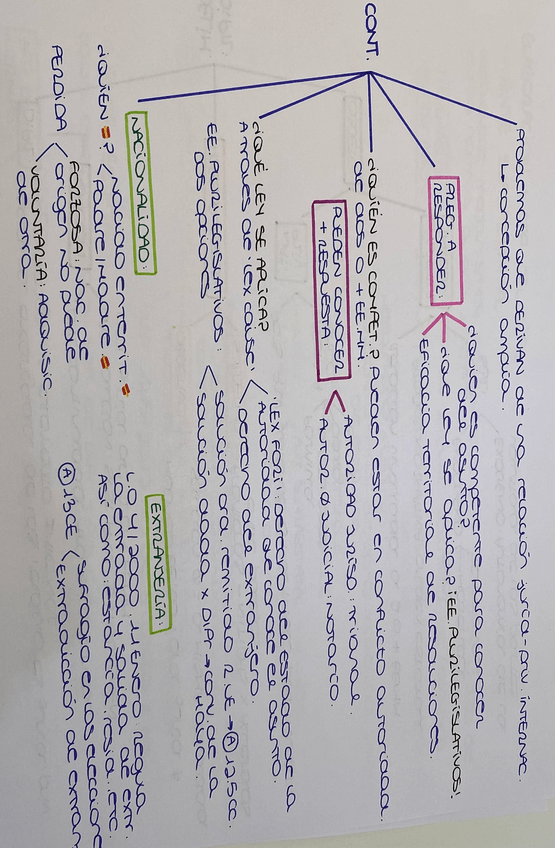 CONT.
PROBLEMAS QUE DERIVAN DE UNA RELACIÓN JURCA-PRIV INTERNAC.
↳ concepción amplia.
PREG. A
RESPONDER:
¿Quién es competente para conocer
del asunto?
¿QUÉ LEY SE APLICA? ¡EE. PLURILEGISLATIVOS!
EFICACIA TERRITORIAL DE RESOLUCIONES.
¿QUIÉN ES COMPET.? PUEDEN ESTAR EN CONFLICTO AUTORIDAD.
DE DOS O + EE.MM
PUEDEN CONOCER
+ RESPUESTA:
AUTORIDAD JURISD.: TRIBUNAL
AUTOR. Ø JUDICIAL: NOTARIO.
¿QUÉ LEY SE APLICA?
A TRAVÉS DE "LEX CAUSE"
"LEX FORI": DERECHO DEL ESTADO DE LA
AUTORIDAD QUE CONOCE EL ASUNTO.
DERECHO DEL EXTRANJERO.
EE. PLURILEGISLATIVOS:
DOS OPCIONES
SOLUCIÓN ORD. REMITIDO → Ⓐ 12.5 CC.
SOLUCIÓN DADA X DIPr → CONV DE LA
HAYA.
NACIONALIDAD:
¿QUIÉN ES?
NACIDO EN TERRIT.
PADRE/MADRE
PERDIDA
FORZOSA: NAC DE
ORIGEN NO PUEDE
VOLUNTARIA: ADQUISIC.
DE OTRA.
EXTRANJERÍA:
L.O 4/2000, 11 ENERO REGULA
LA ENTRADA Y SALIDA DE EXTR.
ASÍ COMO: ESTANCIA, RESID., ETC.
Ⓐ 13 CE
SUFRAGIO EN LAS ELECCIONE
EXTRADICIÓN DE EXTRAN